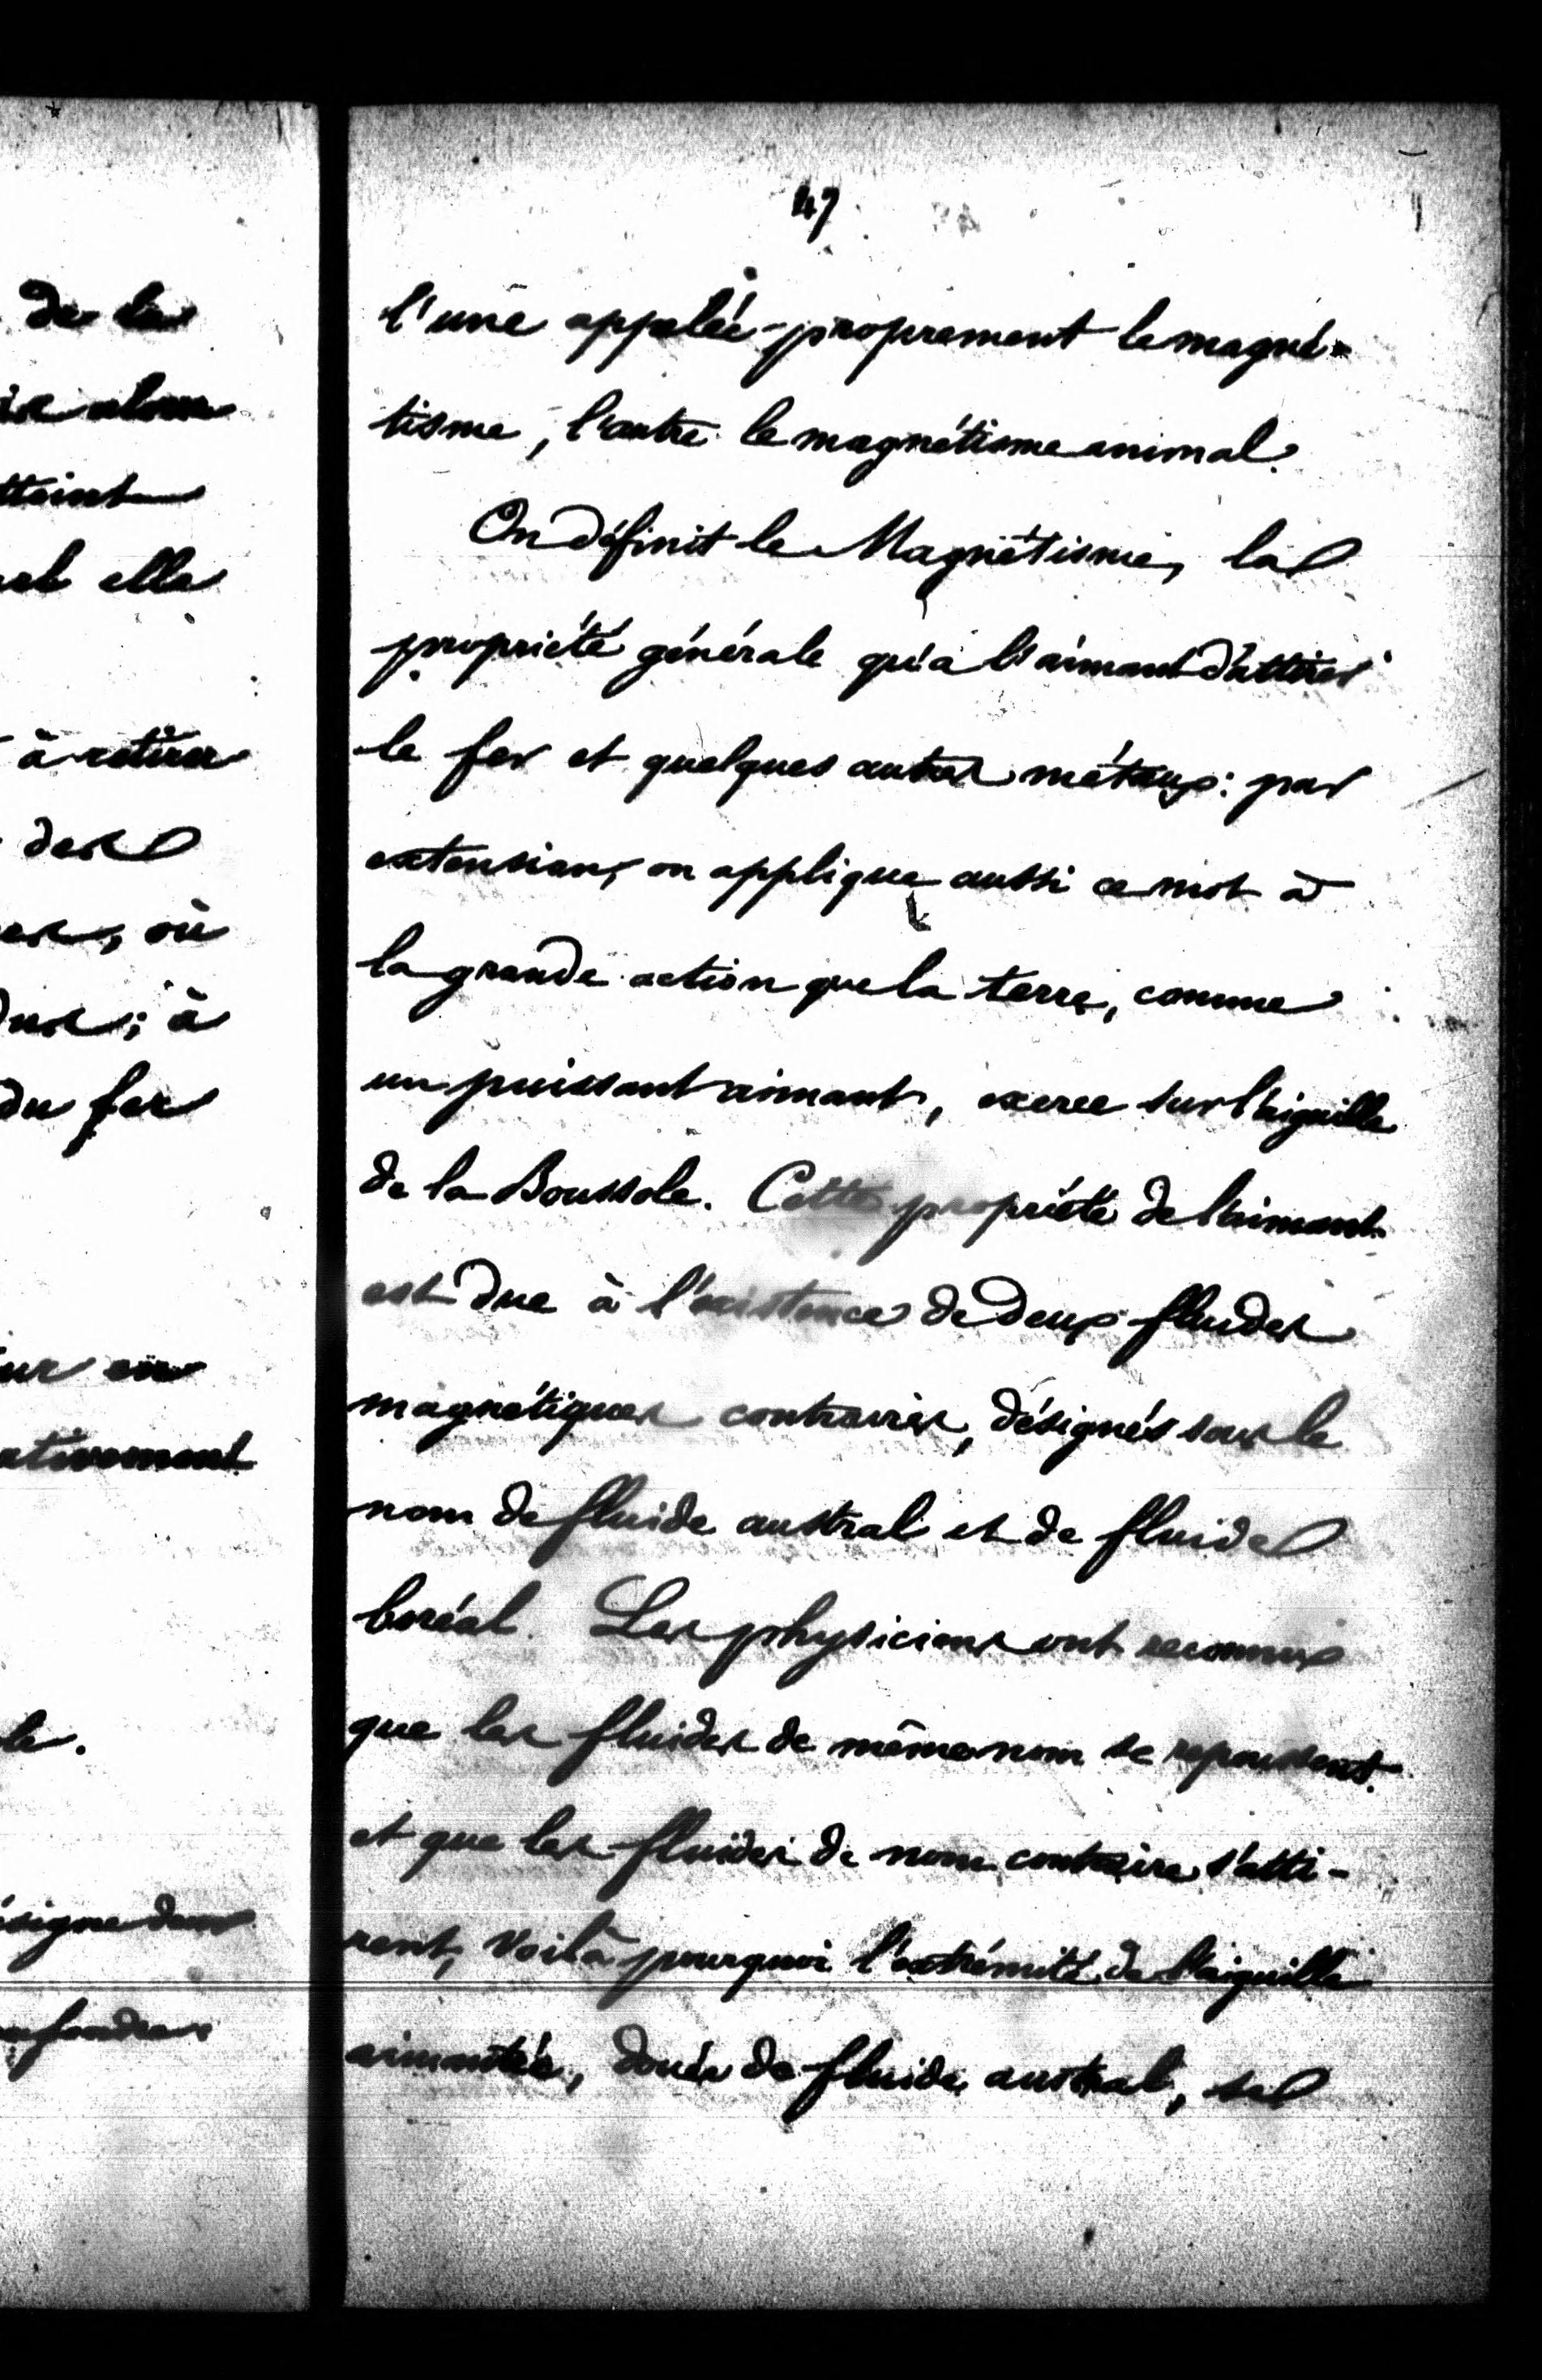 de la
alors
elle
à retirer
des
où
à
du fer
en
le.
47
l'une appelée proprement le magné-
tisme, l'autre le magnétisme animal.
On définit le Magnétisme, la
propriété générale qu'a l'aimant d'attirer
le fer et quelques autres métaux : par
extension, on applique aussi ce mot à
la grande action que la terre, comme
un puissant aimant, exerce sur l'aiguille
de la Boussole. Cette propriété de l'aimant
est due à l'existence de deux fluides
magnétiques contraires, désignés sous le
nom de fluide austral et de fluide
boréal. Les physiciens ont reconnu
que les fluides de même nom se repoussent
et que les fluides de nom contraire s'atti-
rent, voilà pourquoi l'extrémité de l'aiguille
aimantée, douée de fluide austral, se